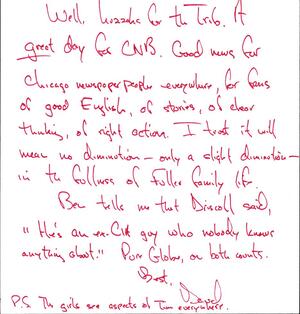 Well, huzzahs for the Trib. A
great day for CNB. Good news for
Chicago newspaper people everywhere, for fans
of good English, of stories, of clear
thinking, of right action. I trust it will
mean no diminution — only a slight diminution —
in the fullness of Fuller family life.
Ben tells me that Driscoll said,
"He's an ex-CIA guy who nobody knows
anything about." Poor Globe, on both counts.
Best,
P.S. The girls are aspects of Tim everywhere.